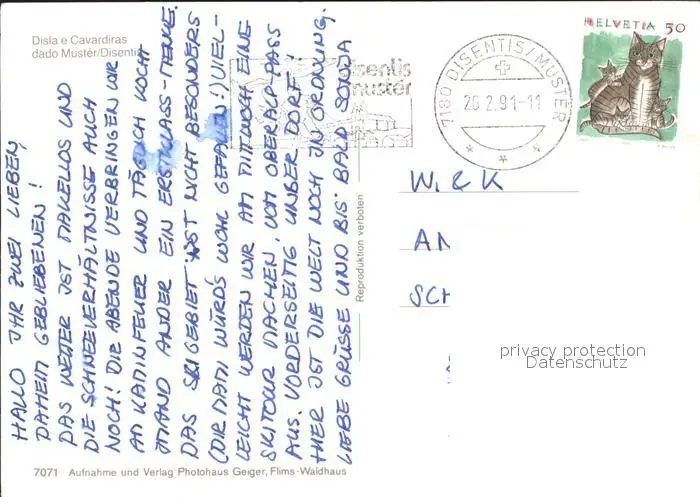 Disla e Cavardiras
dado Mustér/Disentis
HALLO IHR ZWEI LIEBEN,
DAHEIM GEBLIEBENEN!
DAS WETTER IST MAKELLOS UND
DIE SCHNEEVERHÄLTNISSE AUCH
NOCH! DIE ABENDE VERBRINGEN WIR
AM KAMINFEUER UND TÄGLICH KOCHT
JEMAND ANDER EIN ERSTKLASS-MENUE.
DAS SKIGEBIET IST NICHT BESONDERS
(DIR MAMI WÜRD'S WOHL GEFALLEN!) VIEL-
LEICHT WERDEN WIR AM MITTWOCH EINE
SKITOUR MACHEN, VOM OBERALP-PASS
AUS. VORDERSEITIG, UNSER DORF!
HIER IST DIE WELT NOCH IN ORDNUNG.
LIEBE GRÜSSE UND BIS BALD SONJA
7071 Aufnahme und Verlag Photohaus Geiger, Flims-Waldhaus
Reproduktion verboten
disentis
mustér
7180 DISENTIS/MUSTER
20.2.91-11
HELVETIA 50
W. & K
AN
SCH
privacy protection
Datenschutz